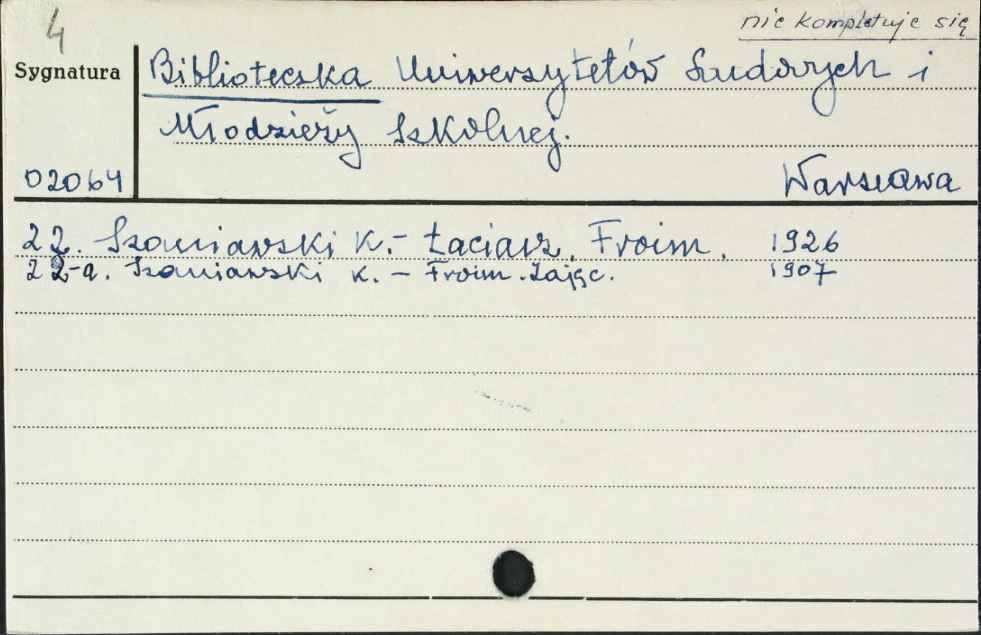 4
nie kompletuje się
Sygnatura
Biblioteczka Uniwersytetów Ludowych i
Młodzieży Szkolnej.
02064
Warszawa
22. Szaniawski K. - Łaciarz. Froim. 1926
22-a. Szaniawski K. - Froim. Zając. 1907